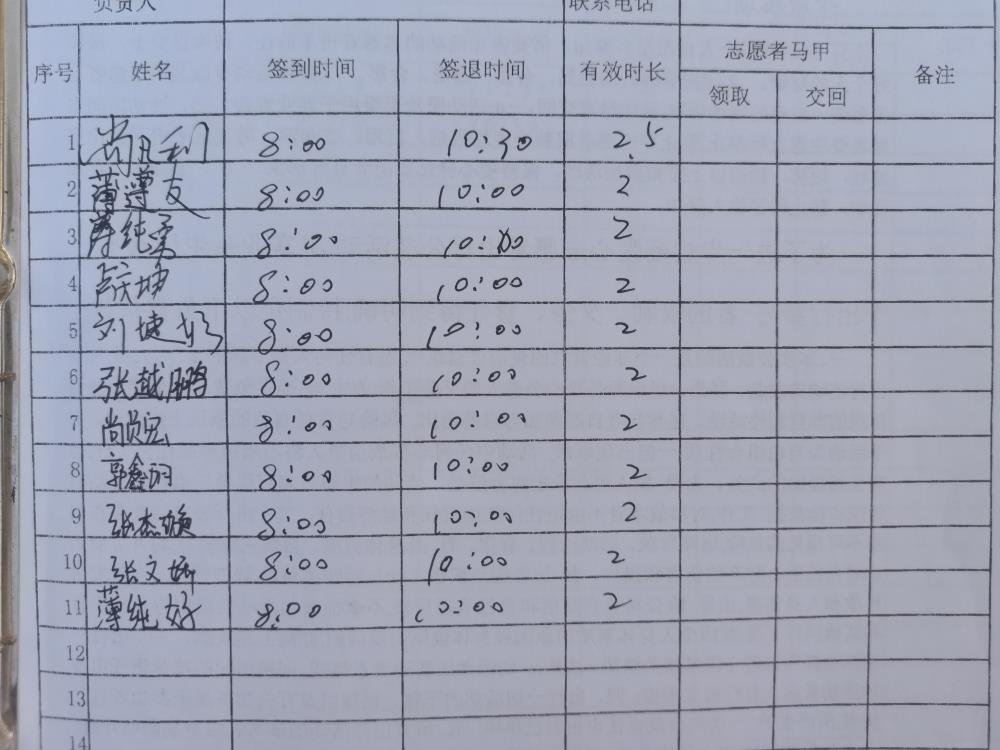 负责人 联系电话
序号 姓名 签到时间 签退时间 有效时长 志愿者马甲 备注
领取 交回
1 尚凡利 8:00 10:30 2.5
2 薄遵友 8:00 10:00 2
3 薄纯柔 8:00 10:00 2
4 卢庆坤 8:00 10:00 2
5 刘建 8:00 10:00 2
6 张越鹏 8:00 10:00 2
7 尚 8:00 10:00 2
8 郭鑫 8:00 10:00 2
9 张杰 8:00 10:00 2
10 张文 8:00 10:00 2
11 薄纯好 8:00 10:00 2
12
13
14